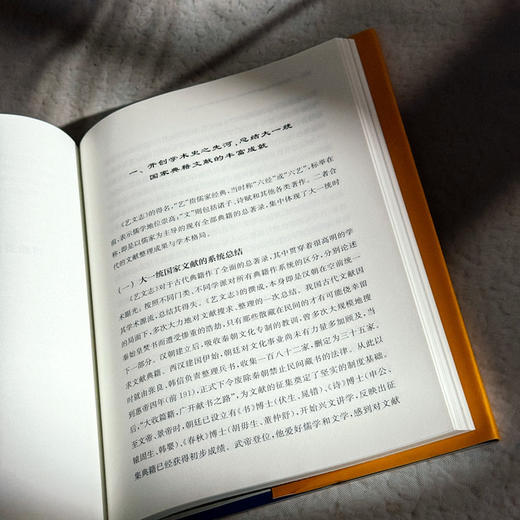 一、开创学术史之先河，总结大一统
国家典籍文献的丰富成就
《艺文志》的得名，“艺”指儒家经典，当时称“六经”或“六艺”，标举在
前，表示儒学地位崇高；“文”则包括诸子、诗赋和其他各类著作。二者合
称，即是以儒家为主导的现有全部典籍的总著录，集中体现了大一统时
代的文献整理成果与学术格局。
（一）大一统国家文献的系统总结
《艺文志》对于古代典籍作了全面的总著录，其中贯穿着很高明的学
术眼光。按照不同门类、不同学派对所有典籍作系统的区分，分别论述
其学术源流，总结其得失。《艺文志》的撰成，本身即是汉朝在空前统一
的局面下，多次大力地对文献搜求、整理的一次总结。我国古代文献因
秦始皇焚书而遭受惨重的劫劫，只有那些散藏在民间的才有可能侥幸留
下一部分。汉朝建立后，吸收秦朝文化专制的教训，曾多次大规模地搜
求文献典籍。西汉建国伊始，朝廷对文化事业尚未有力量多加顾及，当
时就由张良、韩信负责整理兵书，收集一百八十二家，删定为三十五家。
到惠帝四年（前191），正式下令废除秦朝禁止民间藏书的法律。从此以
后，“大收篇籍，广开献书之路”，为文献的征集奠定了坚实的制度基础。
至文帝、景帝时，朝廷已设立有《书》博士（伏生、晁错）、《诗》博士（申公、
辕固生、韩婴）、《春秋》博士（胡毋生、董仲舒），开始兴文讲学，反映出征
集典籍已经获得初步成绩。武帝登位，他爱好儒学和文学，感到对文献